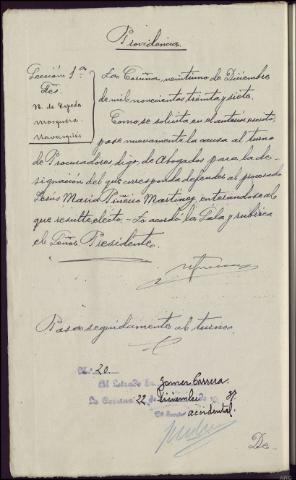 Providencia
Sección 1ª
Sres.
R. de Tejeda
Mosquera
Navarrete
La Coruña, veintiuno de Diciembre
de mil novecientos treinta y siete.
Como se solicita en el anterior escrito,
pase nuevamente la causa al turno
de Procuradores digo, de Abogados, para la de-
signación del que corresponda defender al procesado
Jesús María Piñeiro Martínez, enterándose al
que resulte electo - Lo acordó la Sala y rubrica
el Señor Presidente.
Pasa seguidamente al turno.
Nº 20.
Al Letrado Sr.
La Coruña 22 de Diciembre de 1937
accidental.
De-